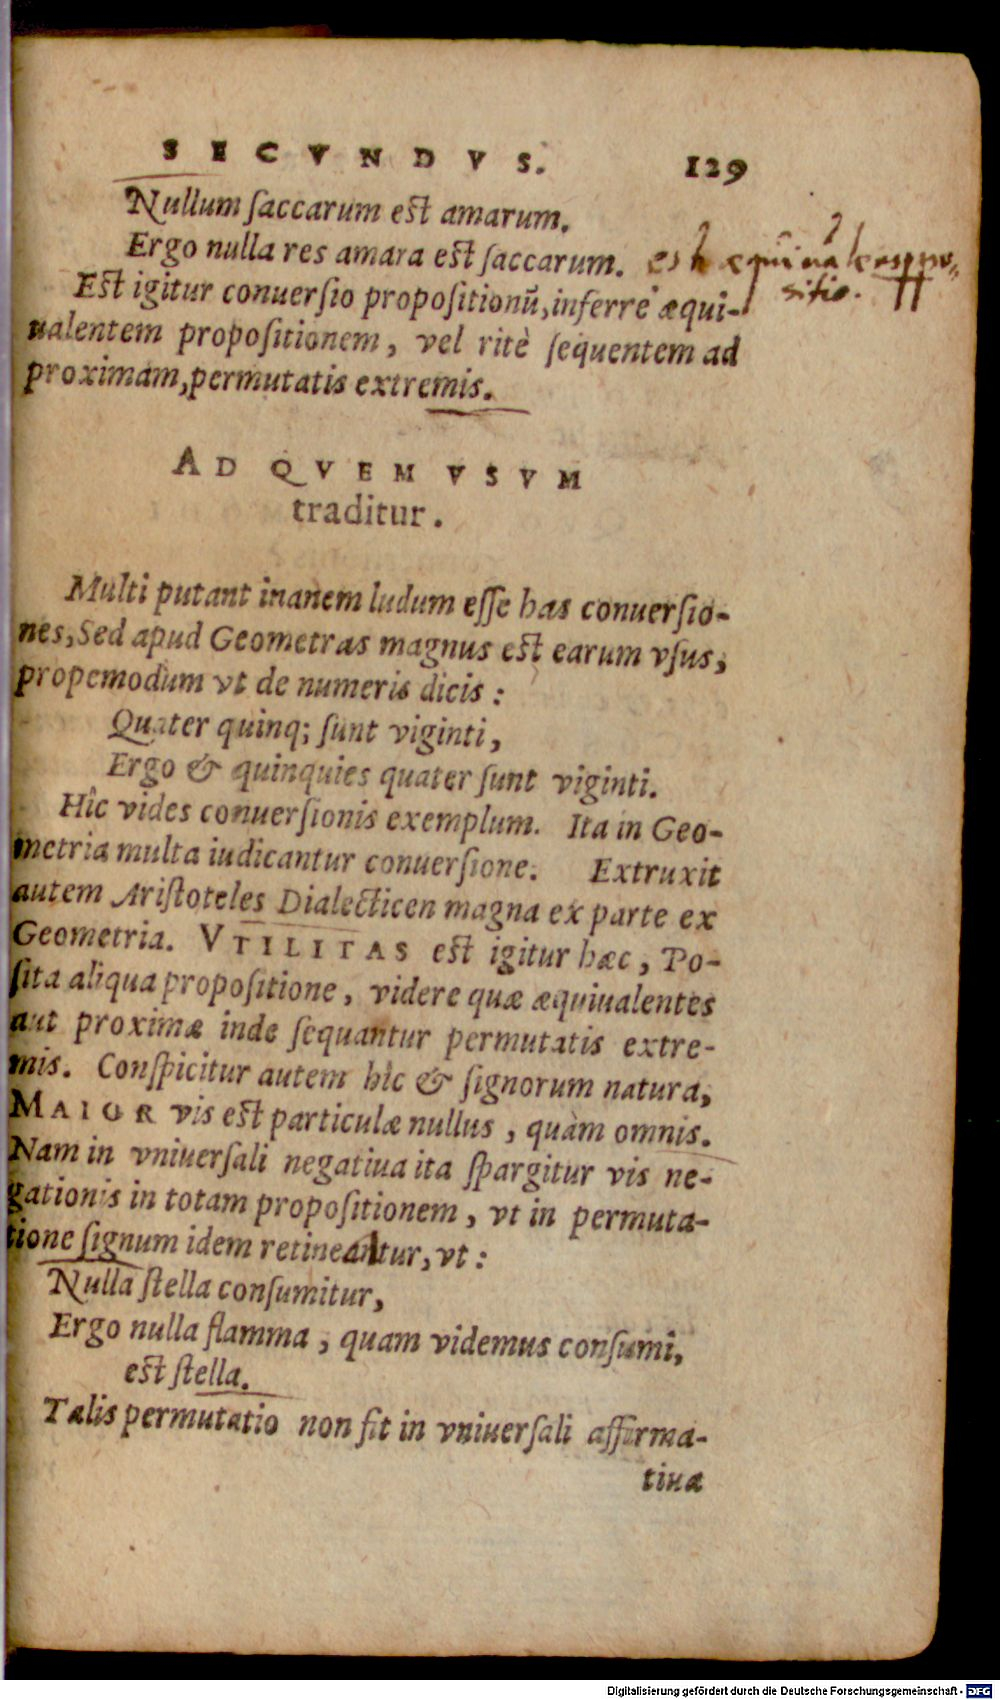 SECVNDVS. 129
Nullum ſaccarum eſt amarum.
Ergo nulla res amara eſt ſaccarum. est æquiualens ppo-
sitio.
Eſt igitur conuerſio propoſitionū, inferre æqui-
ualentem propoſitionem, vel ritè ſequentem ad
proximam, permutatis extremis.
AD QVEM VSVM
traditur.
Multi putant inanem ludum eſſe has conuerſio-
nes, Sed apud Geometras magnus eſt earum vſus,
propemodum vt de numeris dicis:
Quater quinq; ſunt viginti,
Ergo & quinquies quater ſunt viginti.
Hîc vides conuerſionis exemplum. Ita in Geo-
metria multa iudicantur conuerſione. Extruxit
autem Ariſtoteles Dialecticen magna ex parte ex
Geometria. VTILITAS eſt igitur hæc, Po-
ſita aliqua propoſitione, videre quæ æquiualentes
aut proximæ inde ſequantur permutatis extre-
mis. Conſpicitur autem hîc & ſignorum natura,
MAIOR vis eſt particulæ nullus, quàm omnis.
Nam in vniuerſali negatiua ita ſpargitur vis ne-
gationis in totam propoſitionem, vt in permuta-
tione ſignum idem retineantur, vt:
Nulla ſtella conſumitur,
Ergo nulla flamma, quam videmus conſumi,
eſt ſtella.
Talis permutatio non fit in vniuerſali affirma-
tiua
Digitalisierung gefördert durch die Deutsche Forschungsgemeinschaft - DFG